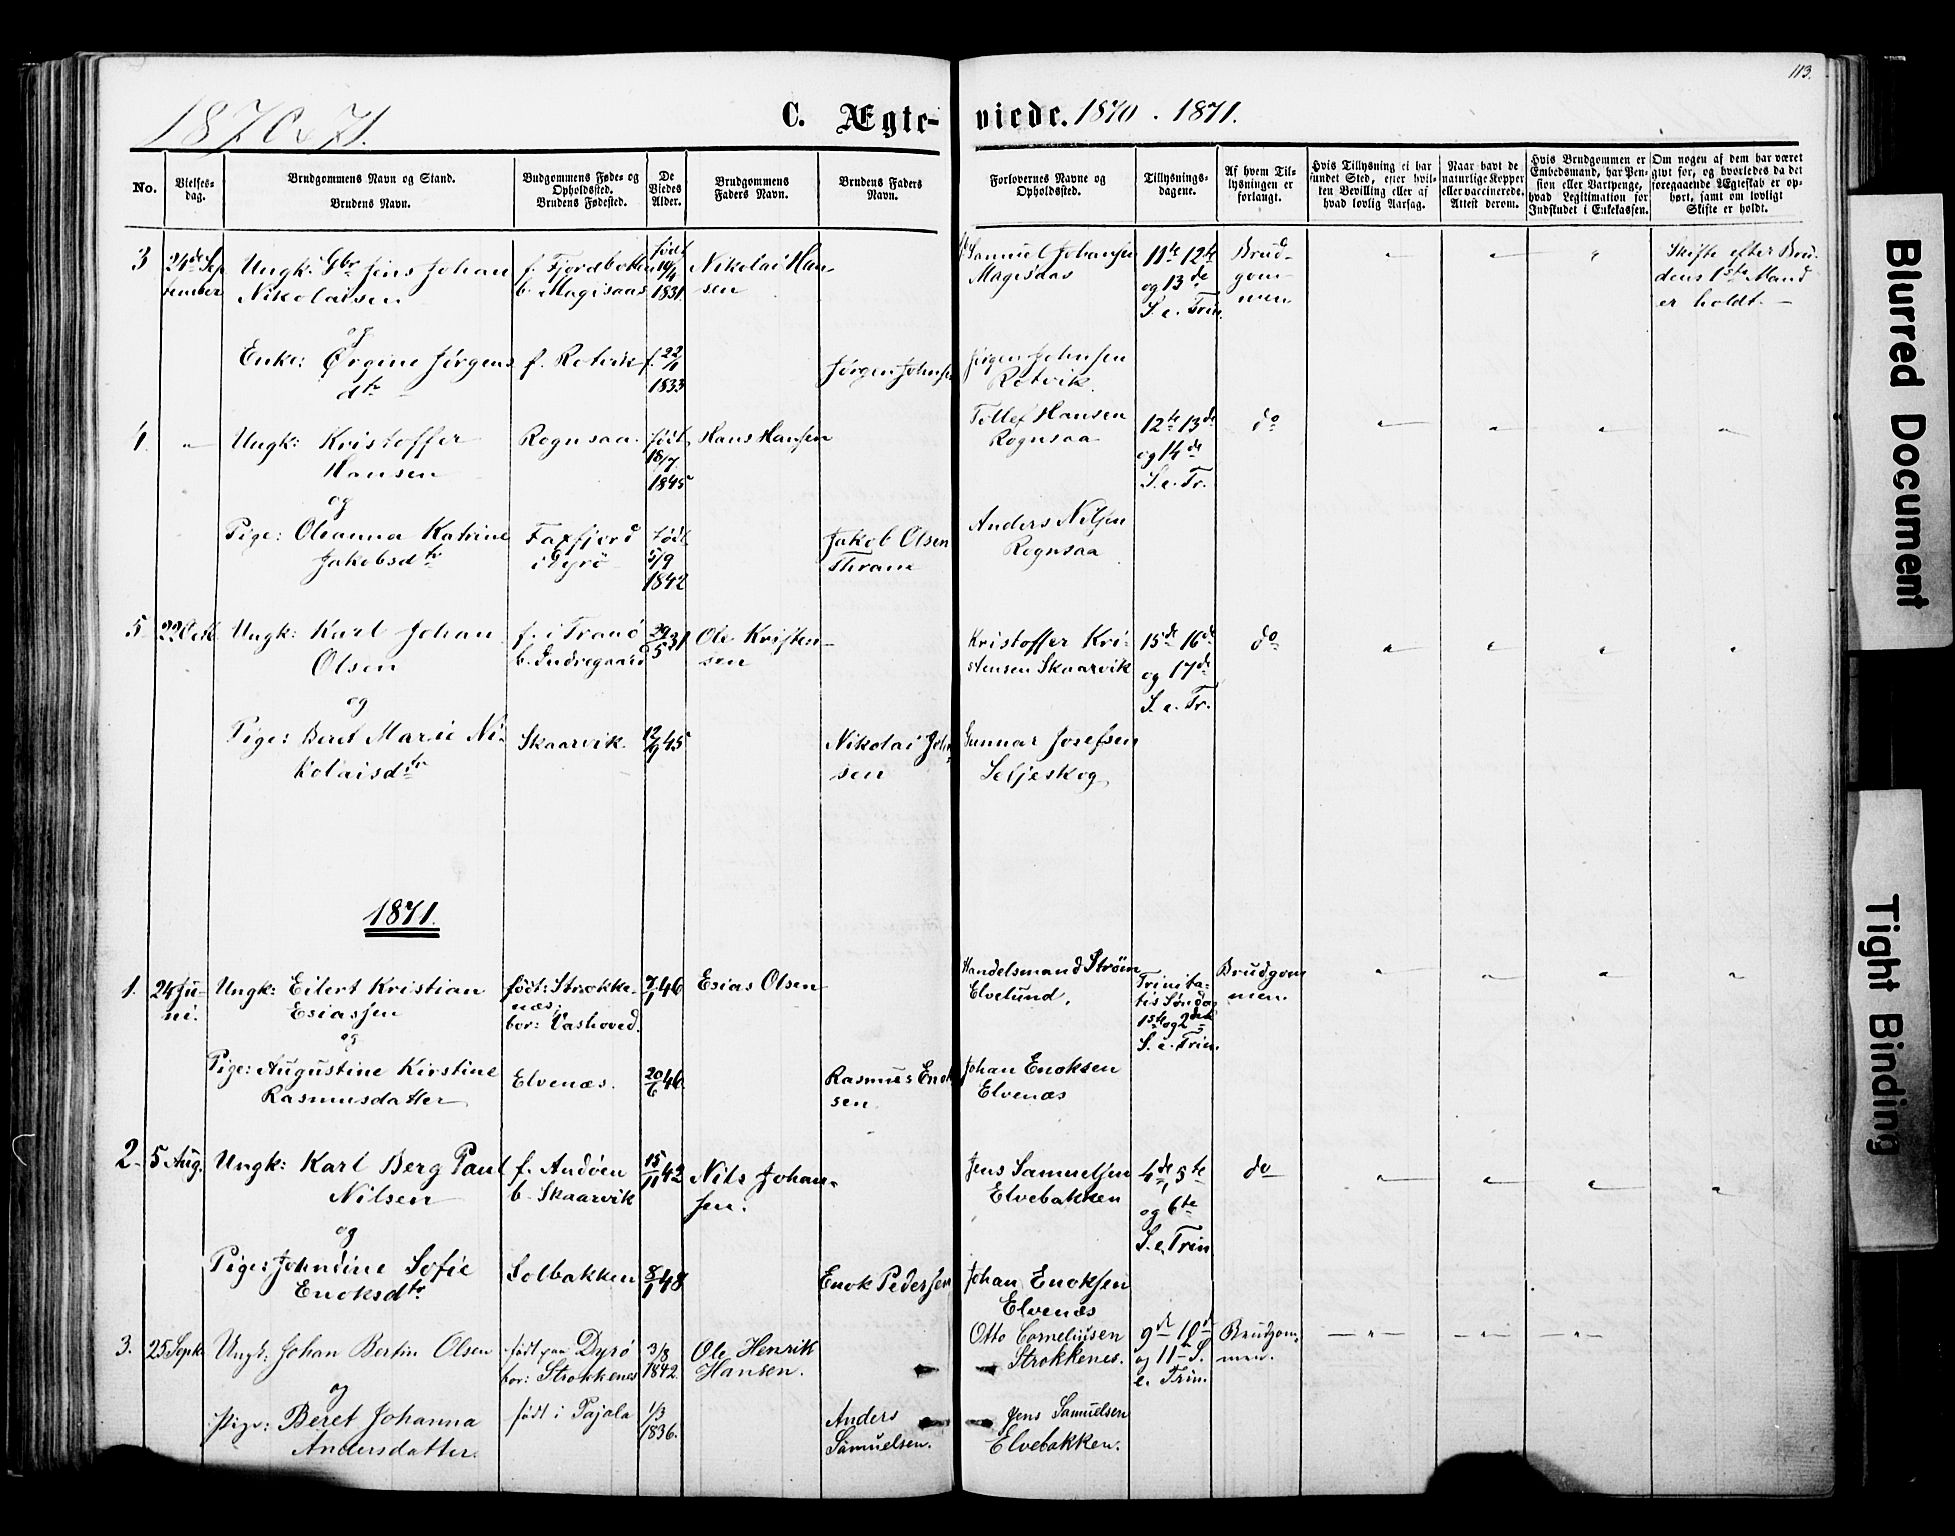 113.
1870 & 71.
C. Ægte-
viede. 1870 - 1871.
No.
Vielses-
dag.
Brudgommens Navn og Stand.
Brudens Navn.
Budgommens Føde- og
Opholdssted.
Brudens Fødested.
De
Viedes
Alder.
Brudgommens
Faders Navn.
Brudens Faders
Navn.
Forlovernes Navne og
Opholdssted.
Tillysnings-
dagene.
Af hvem Til-
lysningen er
forlangt.
Hvis Tillysning ei har
fundet Sted, efter hvil-
ken Bevilling eller af
hvad lovlig Aarsag.
Naar havt de
naturlige Kopper
eller vaccinerede.
Attest derom.
Hvis Brudgommen er
Embedsmand, har Pen-
sion eller Vartpenge,
hvad Legitimation for
Indskudet i Enkekassen.
Om nogen af dem har været
givt før, og hvorledes da det
foregaaende Ægteskab er op-
hørt, samt om lovligt
Skifte er holdt.
3
24de Sep
tember
Ungk: Gbr Jens Johan
Nikolaisen
og
Enke: Ørgine Jørgens
dtr
f. Fjordbotten
b. Magisaas
f. Rotvik
født
19/4
1831
f. 22/1
1833
Nikolai Han-
sen
Jørgen Johnsen
Samuel Johansen
Magisaas
Jørgen Johnsen
Rotvik.
11te 12te
og 13de
S. e. Trin.
Brud-
gom-
men
Skifte efter Bru-
dens 1ste Mand
er holdt. -
4.
"
Ungk: Kristoffer
Hansen
og
Pige: Oleanna Katrine
Jakobsdtr
Rognsaa.
Faxfjord
i Dyrø
født
18/7
1845
Født
5/9
1842
Hans Hansen
Jakob Olsen
Thrane
Tollef Hansen
Rognsaa
Anders Nilsen
Rognsaa
12te 13de
og 14de
S. e. Tr.
do
5
22 Octb
Ungk: Karl Johan
Olsen
og
Pige: Beret Marie Ni-
kolaisdtr
f. i Tranø
b. Indregaard
Skaarvik.
29/5 31
12/9 45
Ole Kristen-
sen
Nikolai John-
sen
Kristoffer Kri-
stensen Skaarvik
Gunnar Josefsen
Seljeskog
15de 16de
og 17de
S. e. Tr.
do
1871.
1.
24 Ju-
ni.
Ungk: Eilert Kristian
Esiassen
og
Pige: Augustine Kirstine
Rasmusdatter
født: Strokke-
næs;
bor: Vashoved.
Elvenæs.
7/1 46
20/6 46
Esias Olsen
Rasmus Enok
sen
Handelsmand Strøm
Elvelund.
Johan Enoksen
Elvenæs
Trinita-
tis Søndag
1ste og 2den
S. e. Trin.
Brudgom
men.
2.
5 Aug.
Ungk: Karl Berg Paul
Nilsen
og
Pige: Johndine Sofie
Enoksdtr
f. Andøen
b. Skaarvik
Solbakken
15/11 42
8/1 48
Nils Johan-
sen.
Enok Pedersen
Jens Samuelsen
Elvebakken
Johan Enoksen
Elvenæs
4de, 5te
og 6te
S. e. Trin
do
3.
25 Sept
Ungk: Johan Bertin Olsen
og
Pige: Beret Johanna
Andersdatter.
født paa Dyrø
bor: Strokkenes
født i Pajala
3/8
1842.
1/3
1836.
Ole Henrik
Hansen.
Anders
Samuelsen.
Otto Corneliusen
Strokkenes.
Jens Samuelsen
Elvebakken.
9d 10d
og 11te S.
e. Trin.
Brudgom-
men.
Blurred Document
Tight Binding